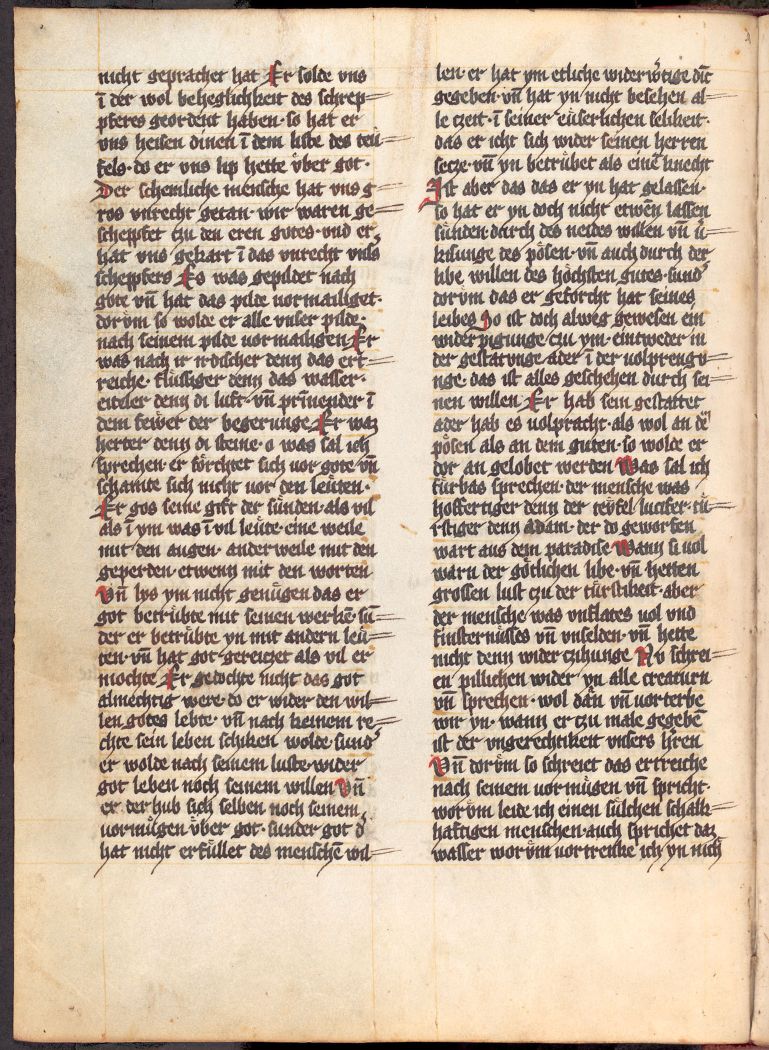 nicht geprachet hat Er solde vns
ī der wol beheglichkeit des schep=
pferes geordent haben · so hat er
vns heisen dinen ī dem liste des teu=
fels · do er vns lip hette vber got ·
Der schemliche mensche hat vns g
ros vnrecht getan · wir waren ge=
scheppfet tzu den eren gotes · vnd er
hat vns gekart ī das vnrecht vnss
scheppfers Es was gepildet nach
gote vn̄ hat das pilde uormailiget ·
dorům so wolde er alle vnser pilde ·
nach seinem pilde uormailigen Er
was nach ir irdischer denn das ert=
reiche · flussiger denn das wasser ·
eiteler denn di luft · vn̄ prīnender ī
dem fewer der begerunge Er waz
herter denn di steine · o was sal ich
sprechen · er förchtet sich uor gote vn̄
schamte sich nicht uor den leuten ·
Er gos seine gift der sunden · als vil
als ī ym was ī vil leute · eine weile
mit den augen · anderweile mit den
geperden · etwenn mit den worten
Vn̄ lys ym nicht genugen das er
got betrubte mit seinen werkē · sun=
der er betrubte yn mit andern leu=
ten · vn̄ hat got gereitzet als vil er
mochte Er gedochte nicht das got
almechtig were · do er wider den wil=
len gotes lebte · vn̄ nach keinem re=
chte sein leben schiken wolde · sund'
er wolde nach seinem luste · wider
got leben noch seinem willen Vn̄
er derhub sich selben noch seinem
uormugen vber got · sunder got d'
hat nicht erfullet des menschē wil=
len · er hat ym etliche widerwtige dīc
gegeben · vn̄ hat yn nicht besehen al=
le czeit · ī seiner euserlichen selikeit ·
das er icht sich wider seinen herren
setze · vn̄ yn betrubet als einē knecht
Ist aber das das er yn hat gelassen ·
so hat er yn doch nicht etwen lassen
sunden · durch des neides willen vn̄ u=
kisunge des pösen · vn̄ auch durch der
libe willen des höchsten gutes · sund'
dorům das er geforcht hat seines
leibes Jo ist doch alweg gewesen ein
widerpigunge tzu ym · eintweder in
der gestatunge ader ī der uolprengu=
nge · das ist alles geschehen durch sei=
nen willen Er hab sein gestattet
ader hab es uolpracht · als wol an dē
pösen als an dem guten · so wolde er
dor an gelobet werden Was sal ich
furbas sprechen · der mensche was
hoffertiger denn der teyfel lucifer · tu=
rstiger denn adam · der do geworfen
wart aus dem paradise Wann si uol
warn der götlichen libe · vn̄ hetten
grossen lust tzu der turstikeit · aber
der mensche was vnflates uol vnd
finsternusses vn̄ vnselden · vn̄ hette
nicht denn widertzihunge Nv schrei=
en pillichen wider yn alle creaturn
vn̄ sprechen · wol dān vn̄ uorterbe
wir yn · wann er tzu male gegebē
ist der vngerechtikeit vnsers h'ren
Vn̄ dorům so schreiet das ertreiche
nach seinem uormugen vn̄ spricht ·
worům leide ich einen sulchen schalk=
haftigen menschen · auch sprichet daz
wasser worům uortrenke ich yn nich